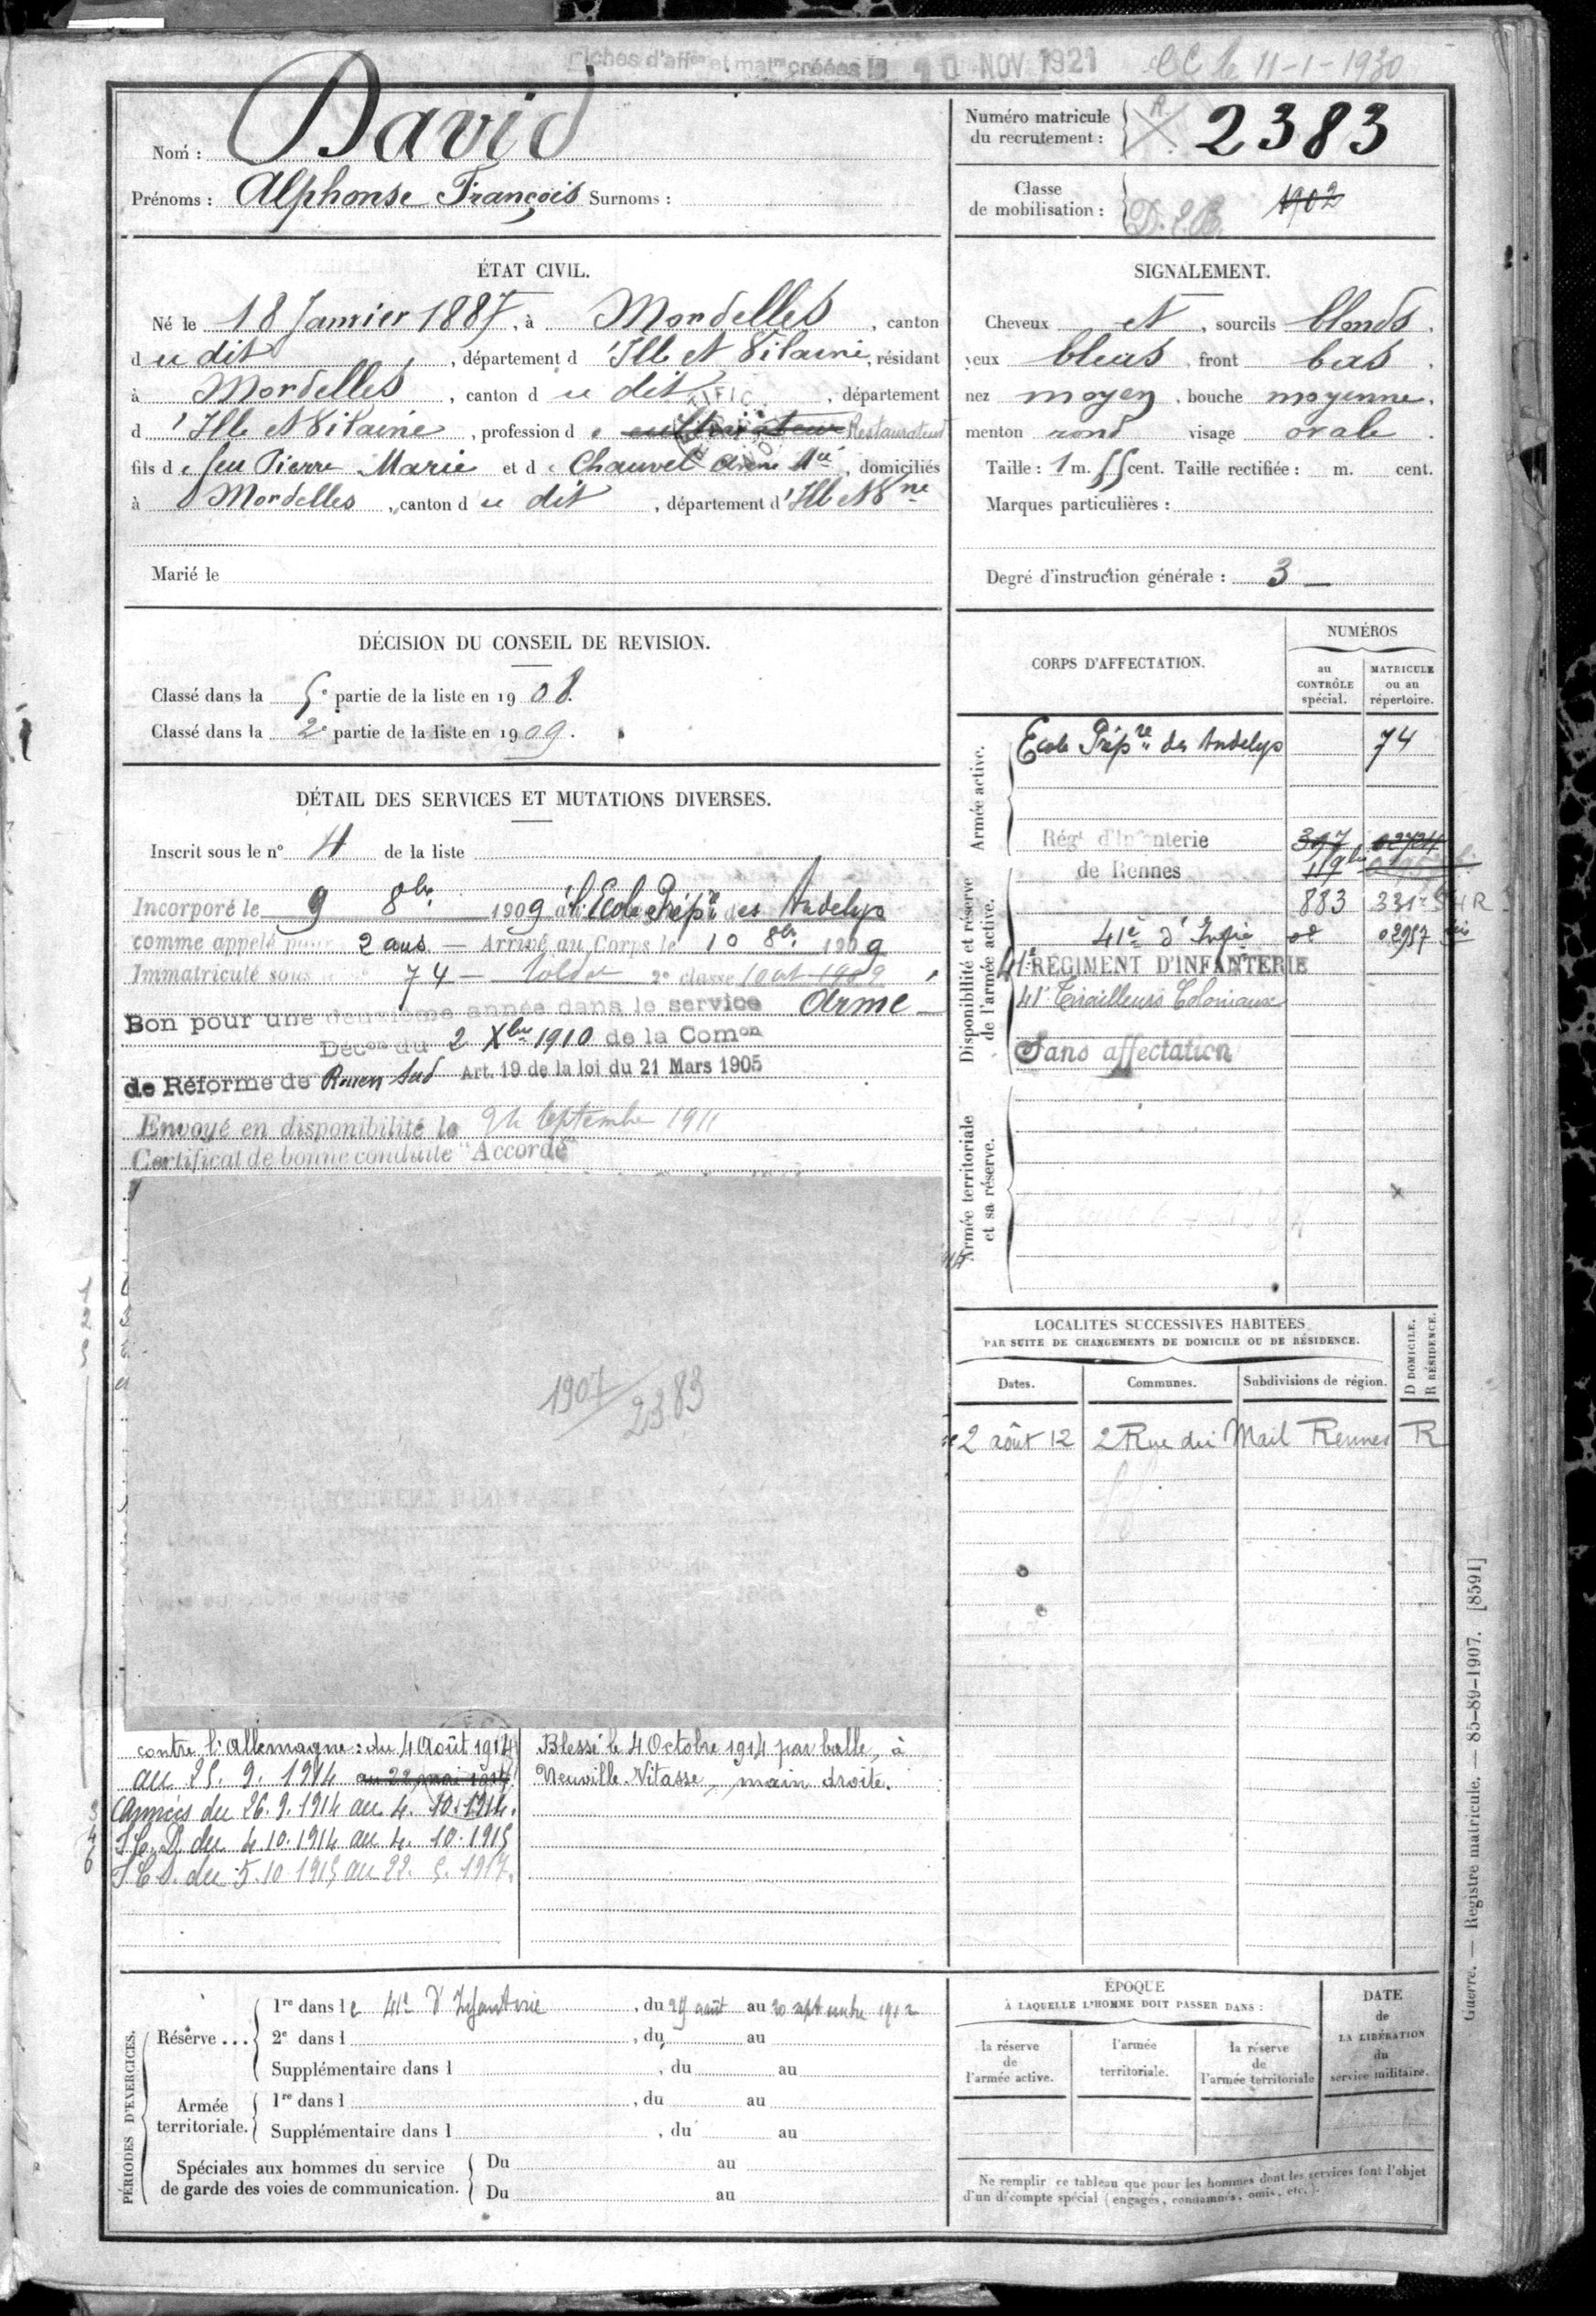 NOV 1921 CC le 11-1-1930
Nom : David
Prénoms : Alphonse François Surnoms :
Numéro matricule du recrutement : R 2383
Classe de mobilisation : 1902
ÉTAT CIVIL.
Né le 18 Janvier 1887, à Mordelles, canton
d u dit, département d 'Ille et Vilaine, résidant
à Mordelles, canton d u dit, département
d 'Ille et Vilaine, profession d e cultivateur Restaurateur
fils d e feu Pierre Marie et d e Chauvel Mie, domiciliés
à Mordelles, canton d u dit, département d 'Ille et Vne
Marié le
SIGNALEMENT.
Cheveux et, sourcils blonds.
yeux bleus, front bas.
nez moyen, bouche moyenne.
menton rond visage ovale.
Taille : 1 m. 55 cent. Taille rectifiée : m. cent.
Marques particulières :
Degré d'instruction générale : 3
DÉCISION DU CONSEIL DE REVISION.
Classé dans la 5e partie de la liste en 1908.
Classé dans la 2e partie de la liste en 1909.
DÉTAIL DES SERVICES ET MUTATIONS DIVERSES.
Inscrit sous le n° 4 de la liste
Incorporé le 9 8bre 1909 à l'Ecole Prépre des Andelys
comme appelé pour 2 ans — Arrivé au Corps le 10 8bre 1909
Immatriculé sous 74 — Soldat 2e classe 1909
Bon pour une deuxième année dans le service Armé
Décon du 2 Xbre 1910 de la Comon
de Réforme de Rouen Sud Art. 19 de la loi du 21 Mars 1905
Envoyé en disponibilité le 24 Septembre 1911
Certificat de bonne conduite "Accordé"
1907 / 2383
contre l'Allemagne : du 4 Août 1914
au 25. 9. 1914 au 22 mai 1917
Armées du 26. 9. 1914 au 4. 10. 1914.
du 4. 10. 1914 au 4. 10. 1915
du 5. 10 1915 au 22. 5. 1917.
Blessé le 4 Octobre 1914 par balle, à
Neuville-Vitasse, main droite.
CORPS D'AFFECTATION.
NUMÉROS
au CONTRÔLE spécial.
MATRICULE ou au répertoire.
Armée active.
Ecole Prépre des Andelys 74
Disponibilité et réserve de l'armée active.
Régt d'Infanterie 397 02724
de Rennes 119bis
883
41e d'Infie 02957 bis
41e RÉGIMENT D'INFANTERIE
41e Tirailleurs Coloniaux
Sans affectation
Armée territoriale et sa réserve.
LOCALITÉS SUCCESSIVES HABITÉES
PAR SUITE DE CHANGEMENTS DE DOMICILE OU DE RÉSIDENCE.
D DOMICILE.
R RÉSIDENCE.
Dates. Communes. Subdivisions de région.
2 août 12 2 Rue du Mail Rennes R
PÉRIODES D'EXERCICES.
Réserve ...
1re dans le 41e d'Infanterie, du 29 août au 20 septembre 1912
2e dans l , du au
Supplémentaire dans l , du au
Armée territoriale.
1re dans l , du au
Supplémentaire dans l , du au
Spéciales aux hommes du service de garde des voies de communication.
Du au
Du au
ÉPOQUE
À LAQUELLE L'HOMME DOIT PASSER DANS :
la réserve de l'armée active.
l'armée territoriale.
la réserve de l'armée territoriale
DATE de LA LIBÉRATION du service militaire.
Ne remplir ce tableau que pour les hommes dont les services font l'objet
d'un décompte spécial (engagés, condamnés, omis, etc.).
Guerre. — Registre matricule. — 85-89-1907. [8591]